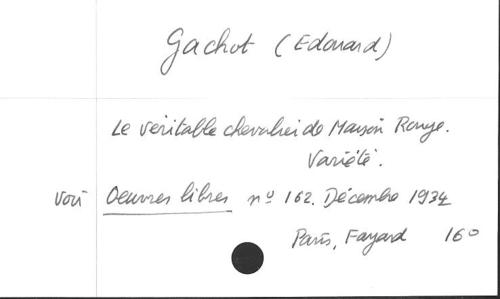 Gachot (Edouard)
Le véritable chevalier de Maison Rouge.
Variété.
Voir Oeuvres libres nº 162. Décembre 1934
Paris, Fayard 16º